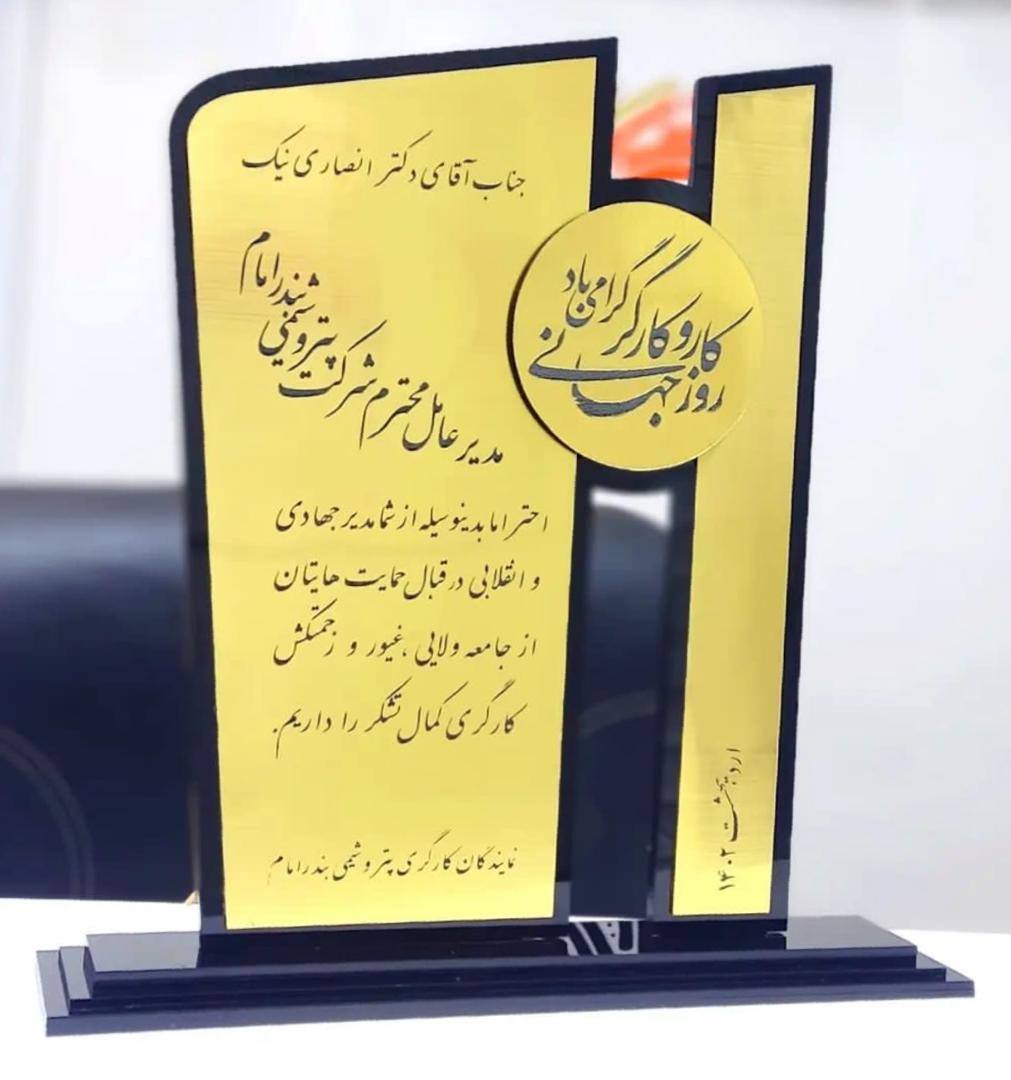 جناب آقای دکتر انصاری نیک
مدیر عامل محترم شرکت پتروشیمی بندر امام
احتراما بدینوسیله از شما مدیر جهادی
و انقلابی در قبال حمایت هایتان
از جامعه ولایی ،غیور و زحمتکش
کارگری کمال تشکر را داریم.
نمایندگان کارگری پتروشیمی بندر امام
روز جهانی
کار و کارگر گرامی باد
اردیبهشت ۱۴۰۲